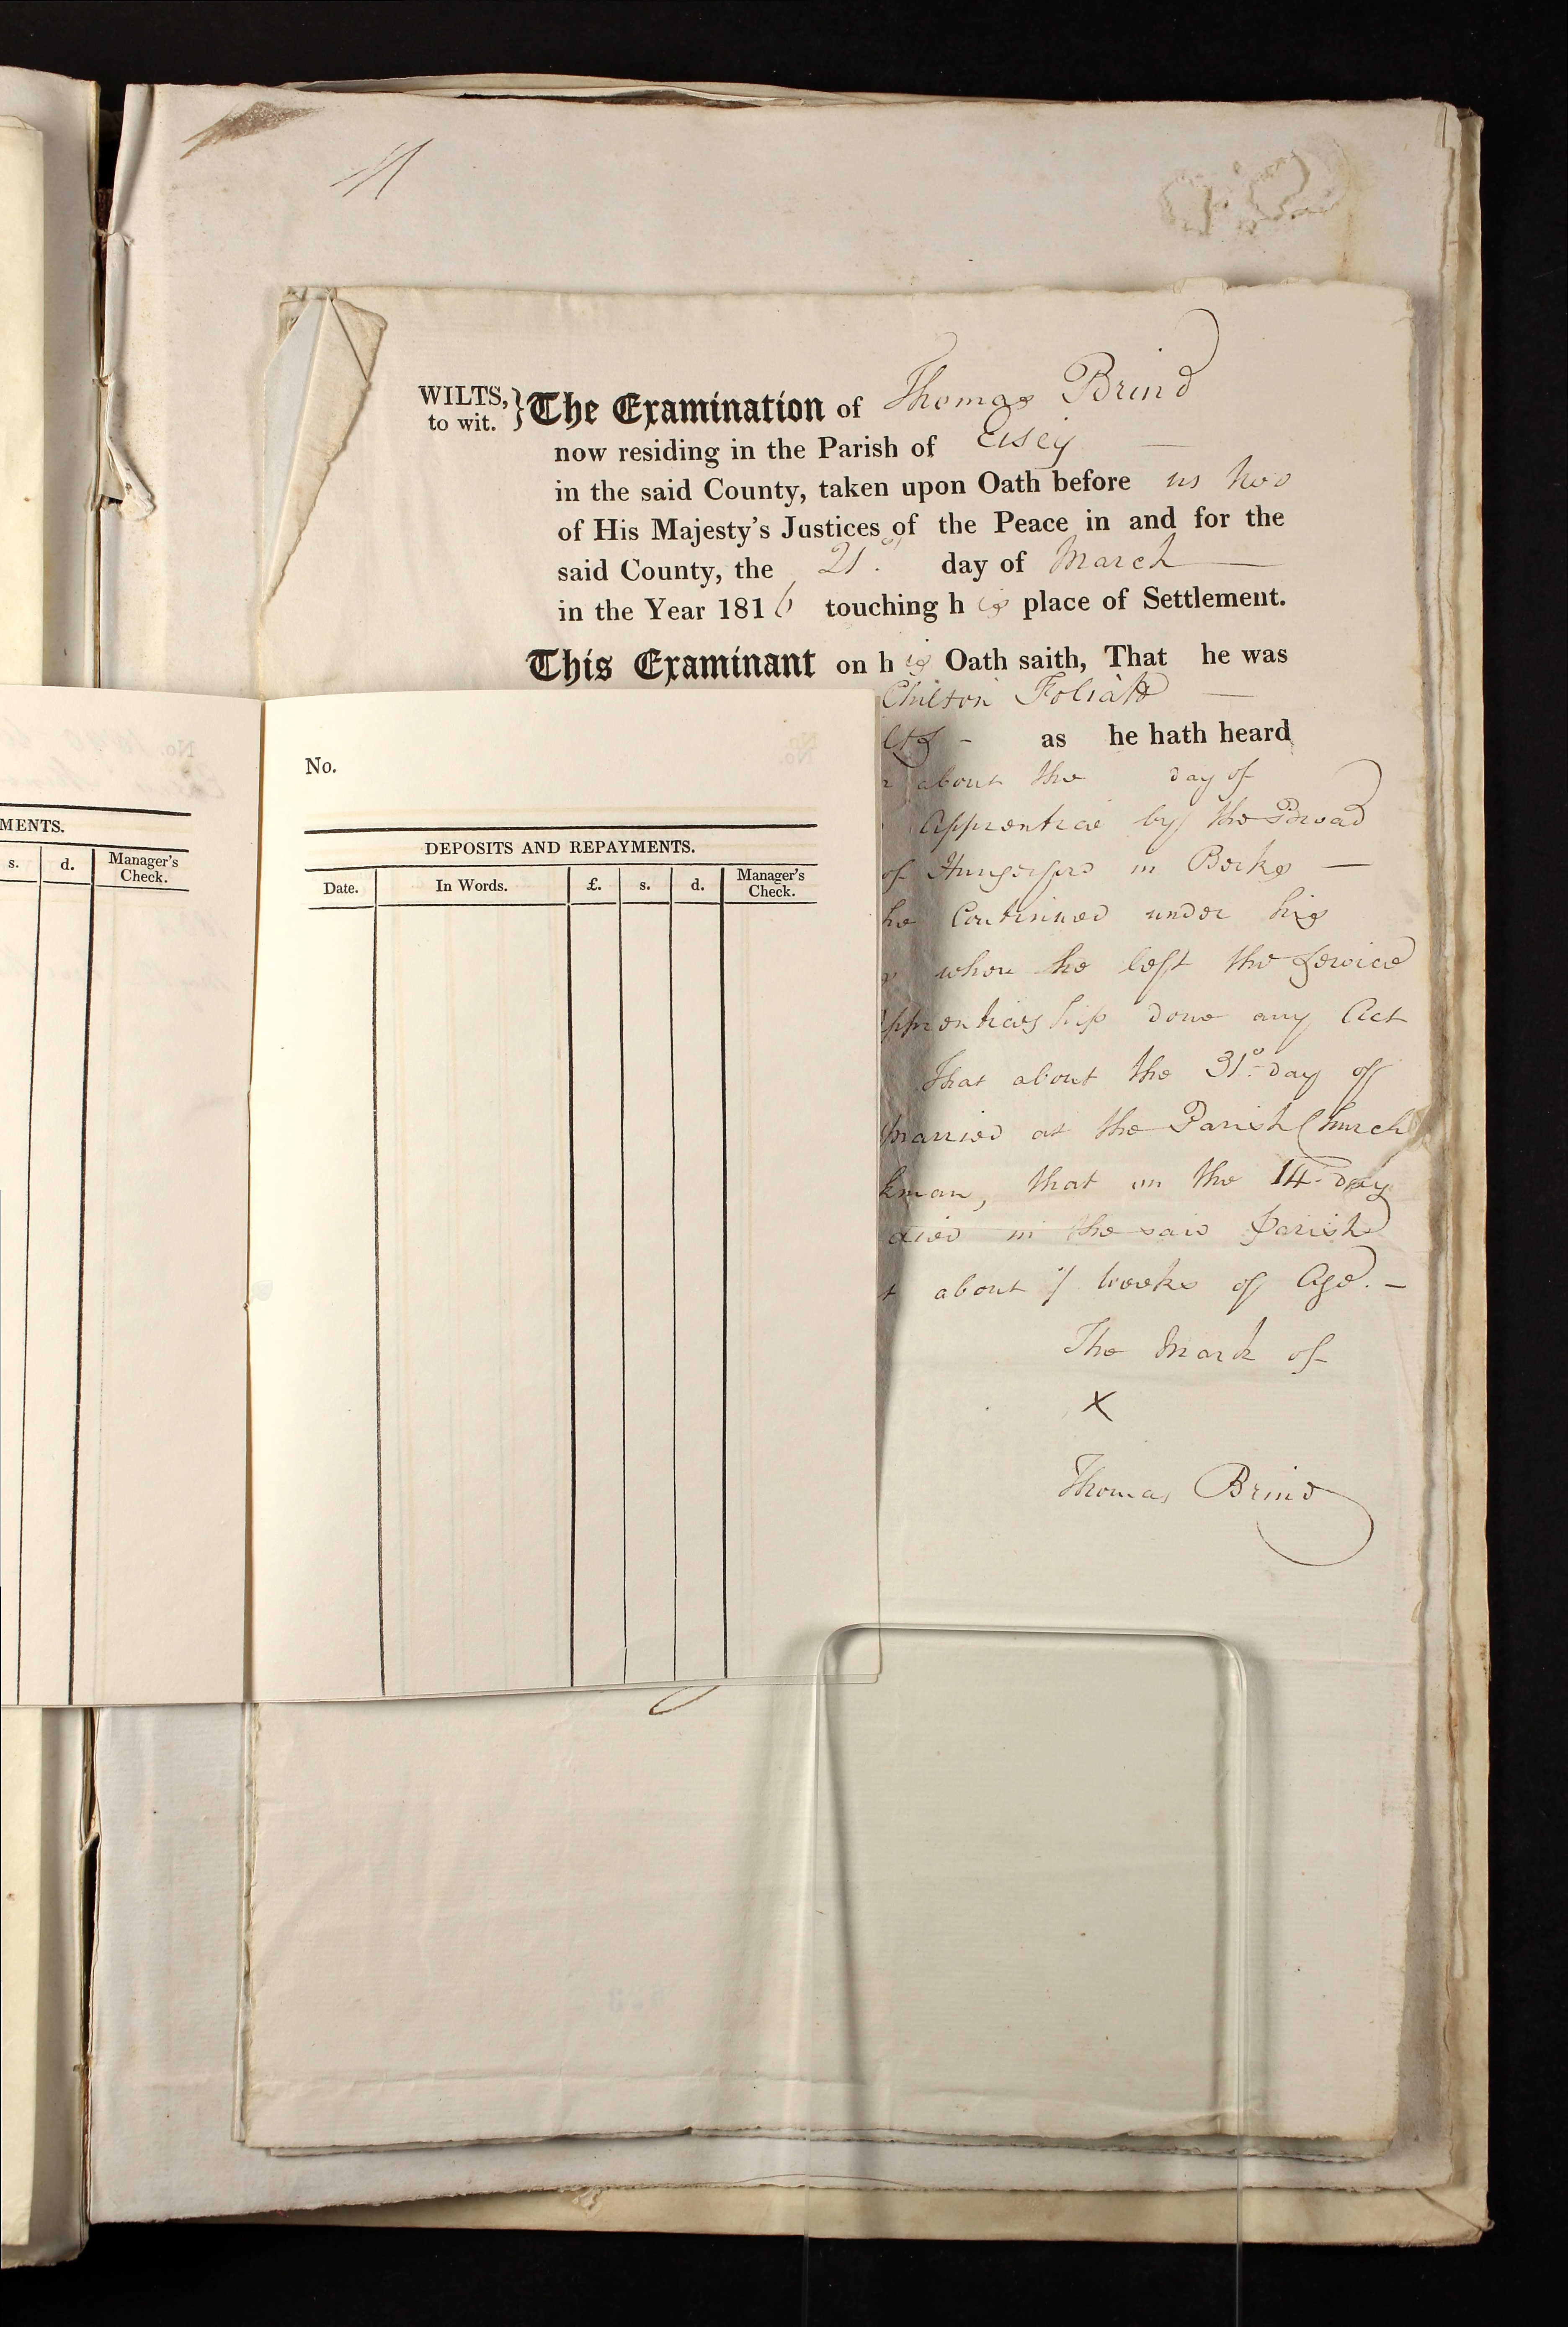 WILTS, to wit. } The Examination of Thomas Brind
now residing in the Parish of Eisey —
in the said County, taken upon Oath before us two
of His Majesty's Justices of the Peace in and for the
said County, the 21st day of March —
in the Year 1816 touching his place of Settlement.
This Examinant on his Oath saith, That he was
Chilton Foliatt —
as he hath heard
about the day of
Apprentice by the
of Hungerford in Berks —
he Continued under his
when he left the Service
pprenticeship done any Act
That about the 31st day of
married at the Parish Church
kman, that on the 14 Day
died in the said Parish
t about 7 weeks of Age. —
The Mark of
X
Thomas Brind
MENTS.
s. d. Manager's Check.
No.
DEPOSITS AND REPAYMENTS.
Date. In Words. £. s. d. Manager's Check.